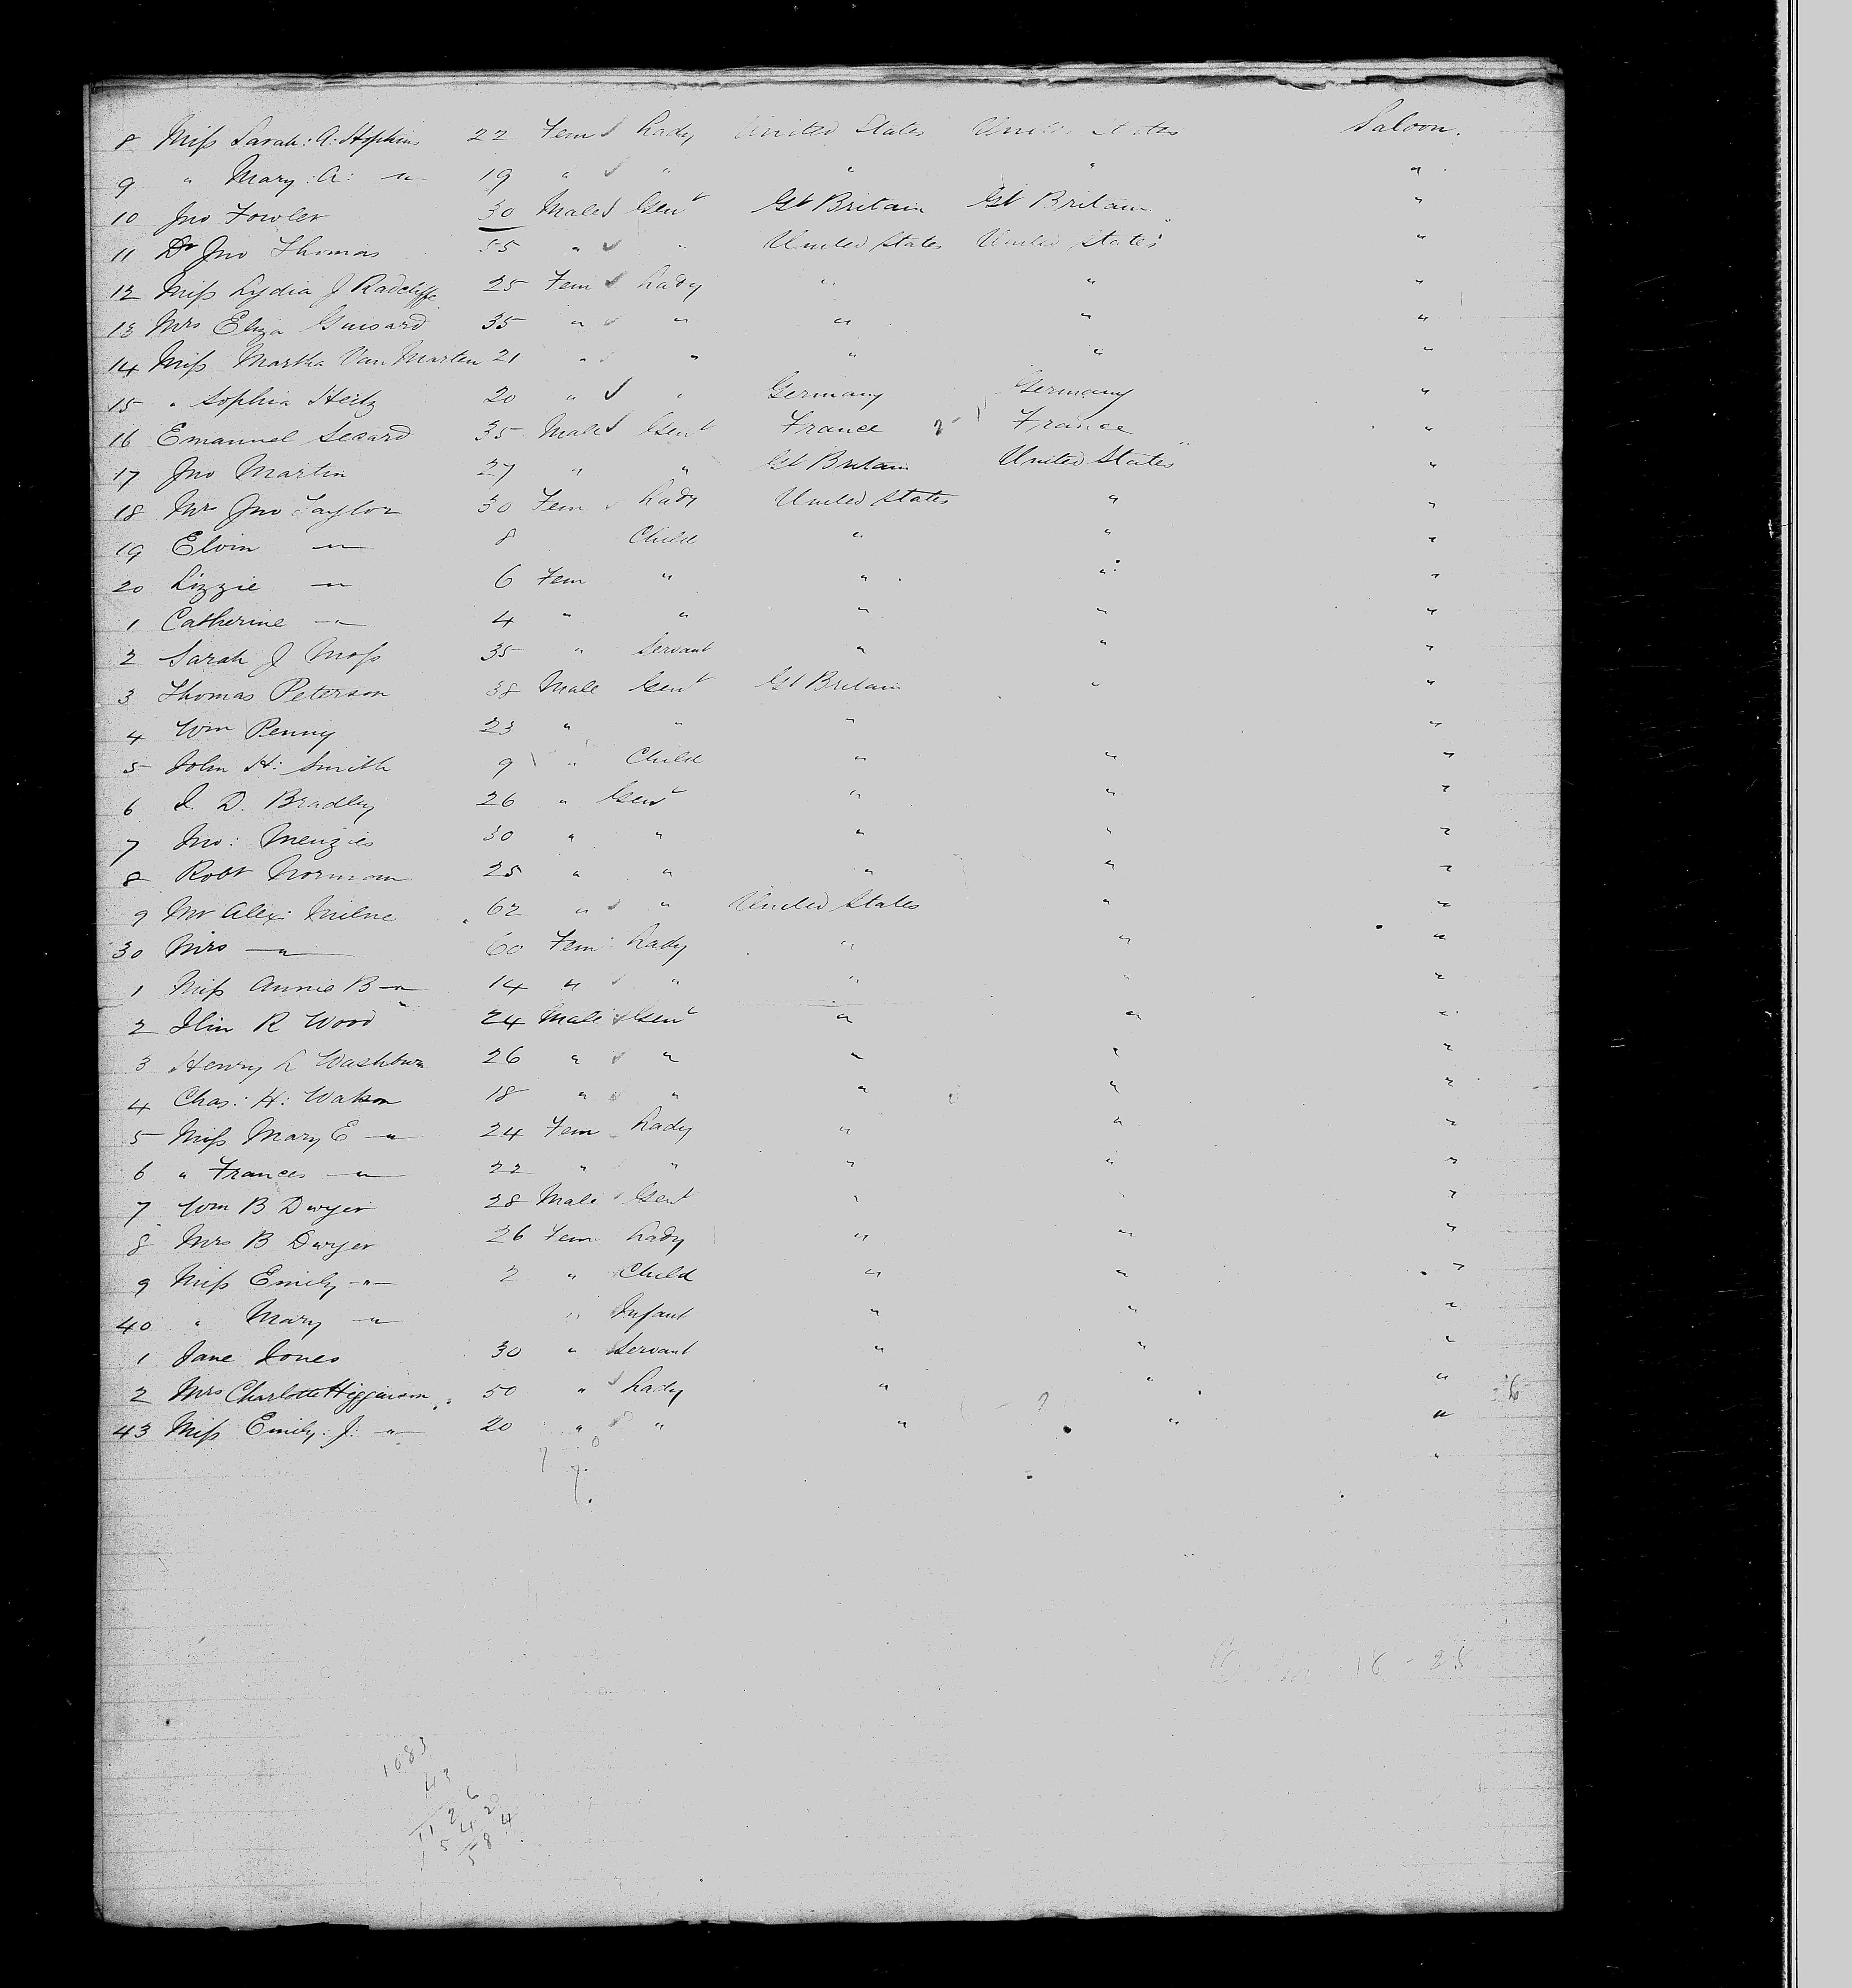 8 Miss Sarah: A: Hopkins 22 Fem Lady United States United States Saloon.
9 " Mary: A: " 19 " " " " "
10 Jno Fowler 30 Male Gent Gt Britain Gt Britain "
11 Dr Jno Thomas 55 " " United States United States "
12 Miss Lydia J Radcliffe 25 Fem Lady " " "
13 Mrs Eliza Guisard 35 " " " " "
14 Miss Martha Van Marten 21 " " " " "
15 " Sophia Heitz 20 " " Germany Germany "
16 Emanuel Secard 35 Male Gent France France "
17 Jno Martin 27 " " Gt Britain United States "
18 Mr Jno Taylor 30 Fem Lady United States " "
19 Elvin " 8 Child " " "
20 Lizzie " 6 Fem " " " "
1 Catherine " 4 " " " " "
2 Sarah J Moss 35 " Servant " " "
3 Thomas Peterson 38 Male Gent Gt Britain " "
4 Wm Penny 23 " " " "
5 John H: Smith 9 " Child " " "
6 I. D. Bradley 26 " Gent " " "
7 Jno: Menzies 30 " " " " "
8 Robt Norman 25 " " " " "
9 Mr Alex: Milne 62 " " United States " "
30 Mrs " 60 Fem Lady " " "
1 Miss Annie B " 14 " " " " "
2 R Wood 24 Male Gent " " "
3 Henry L Washburn 26 " " " " "
4 Chas: H: Watson 18 " " " " "
5 Miss Mary E " 24 Fem Lady " " "
6 " Frances " 22 " " " " "
7 Wm B Dwyer 28 Male Gent " " "
8 Mrs B Dwyer 26 Fem Lady " " "
9 Miss Emily " 2 " Child " " "
40 " Mary " " Infant " " "
1 Jane Jones 30 " Servant " " "
2 Mrs Charlotte Higginson 50 " Lady " " "
43 Miss Emily: J: " 20 " " " " "
18 - 25
1083
43
1126